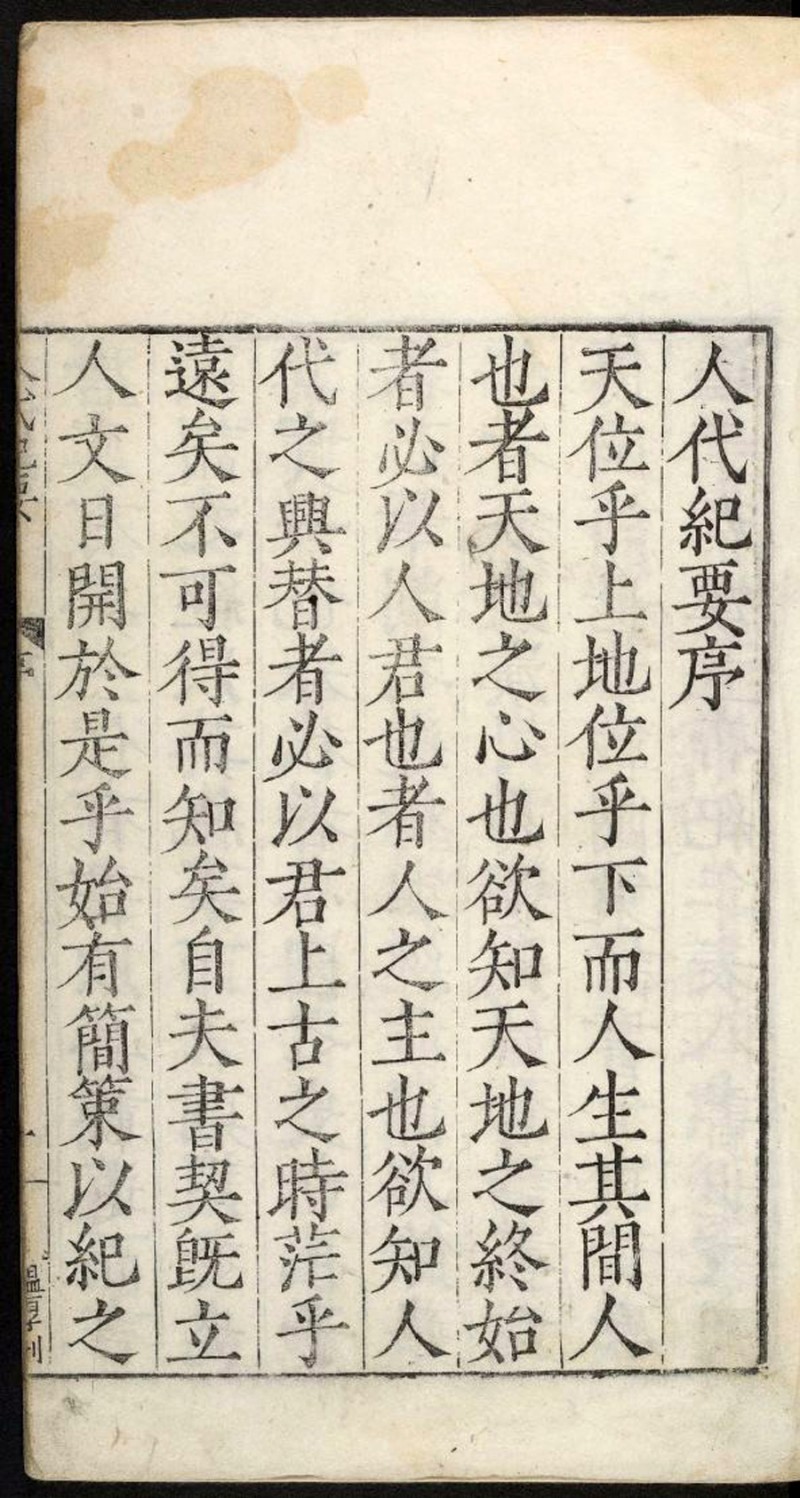 人代紀要序
天位乎上地位乎下而人生其間人
也者天地之心也欲知天地之終始
者必以人君也者人之主也欲知人
代之興替者必以君上古之時茫乎
遠矣不可得而知矣自夫書契旣立
人文日開於是乎始有簡策以紀之